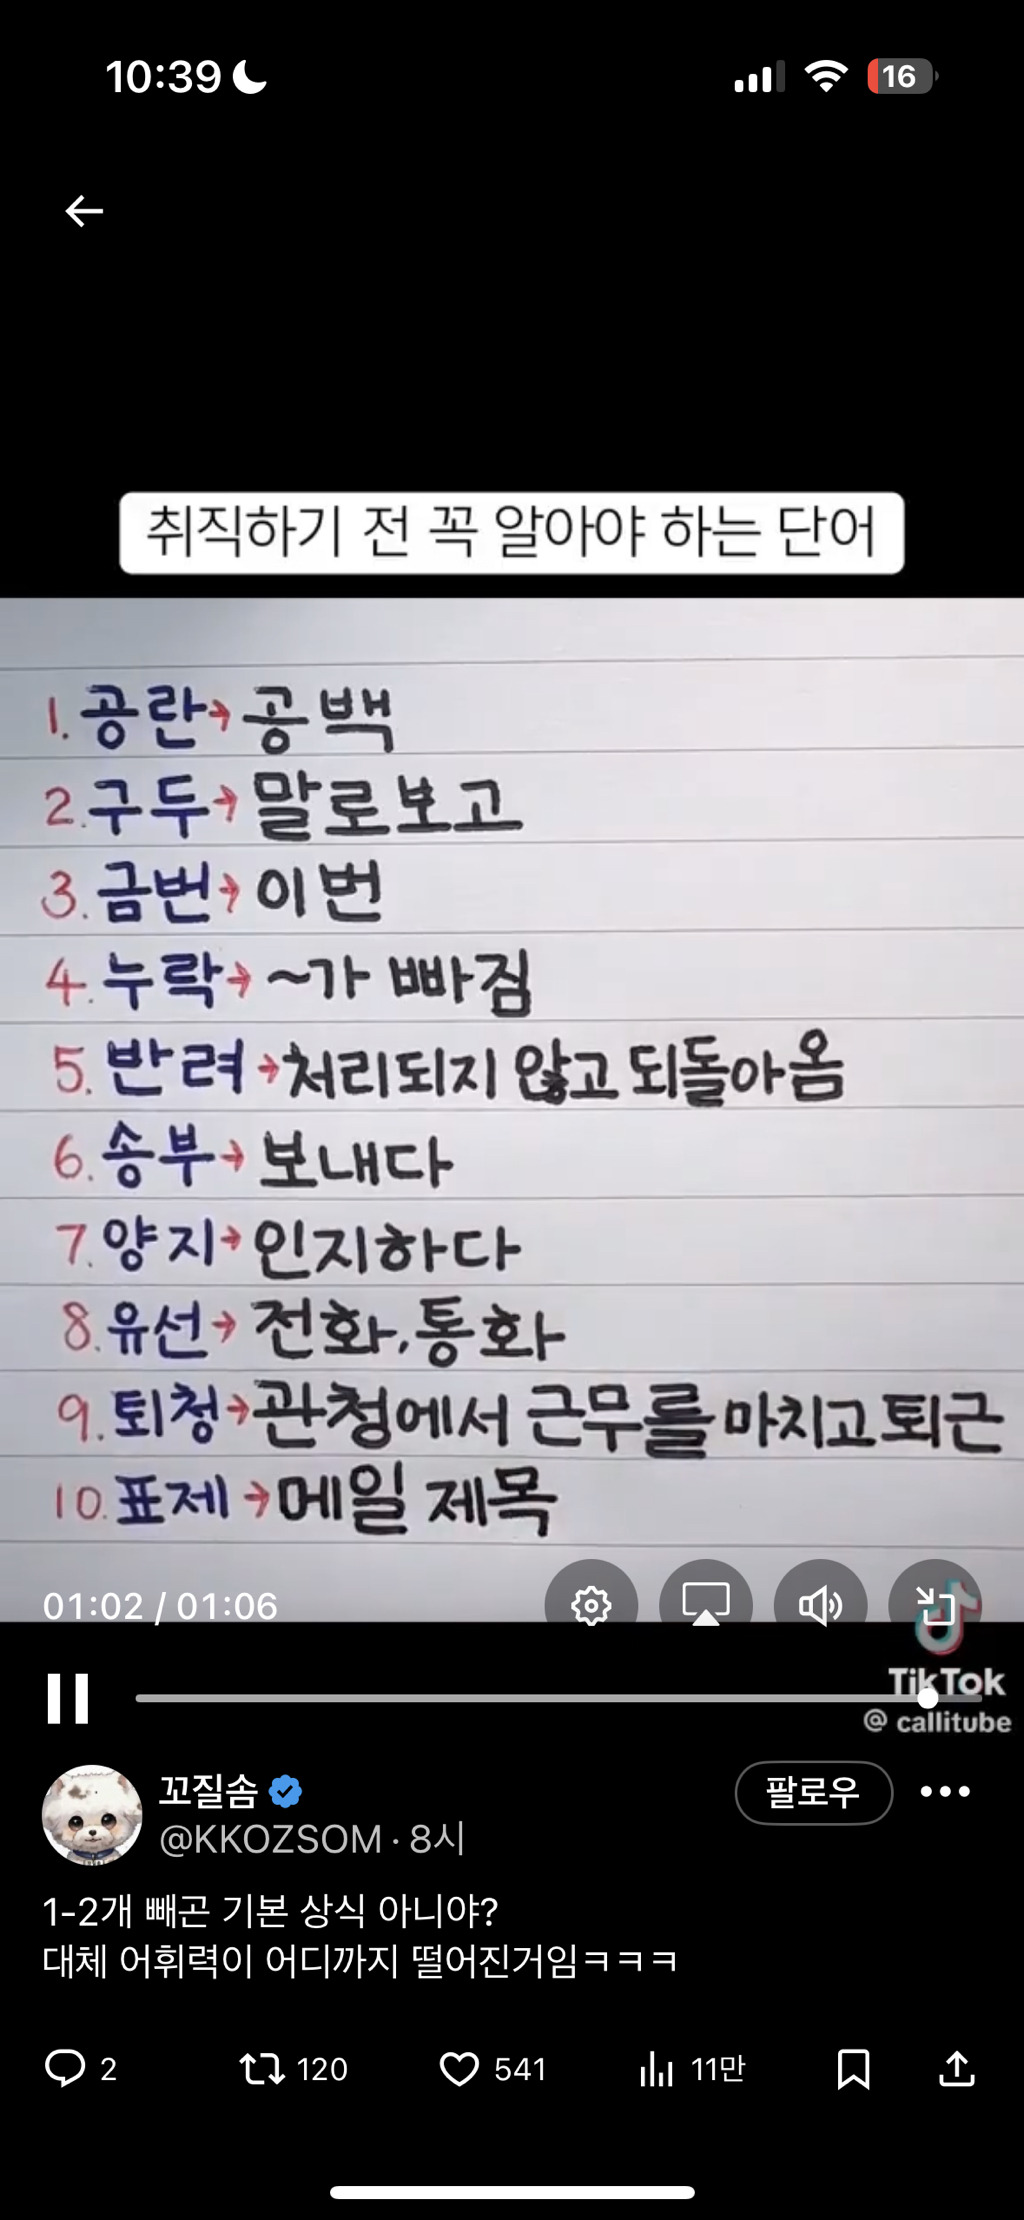 10:39
16
취직하기 전 꼭 알아야 하는 단어
1. 공란→공백
2. 구두→말로보고
3. 금번→이번
4. 누락→~가 빠짐
5. 반려→처리되지 않고 되돌아옴
6. 송부→보내다
7. 양지→인지하다
8. 유선→전화, 통화
9. 퇴청→관청에서 근무를 마치고 퇴근
10. 표제→메일 제목
01:02 / 01:06
TikTok
@ callitube
꼬질솜
팔로우
@KKOZSOM · 8시
1-2개 빼곤 기본 상식 아니야?
대체 어휘력이 어디까지 떨어진거임ㅋㅋㅋ
2 120 541 11만